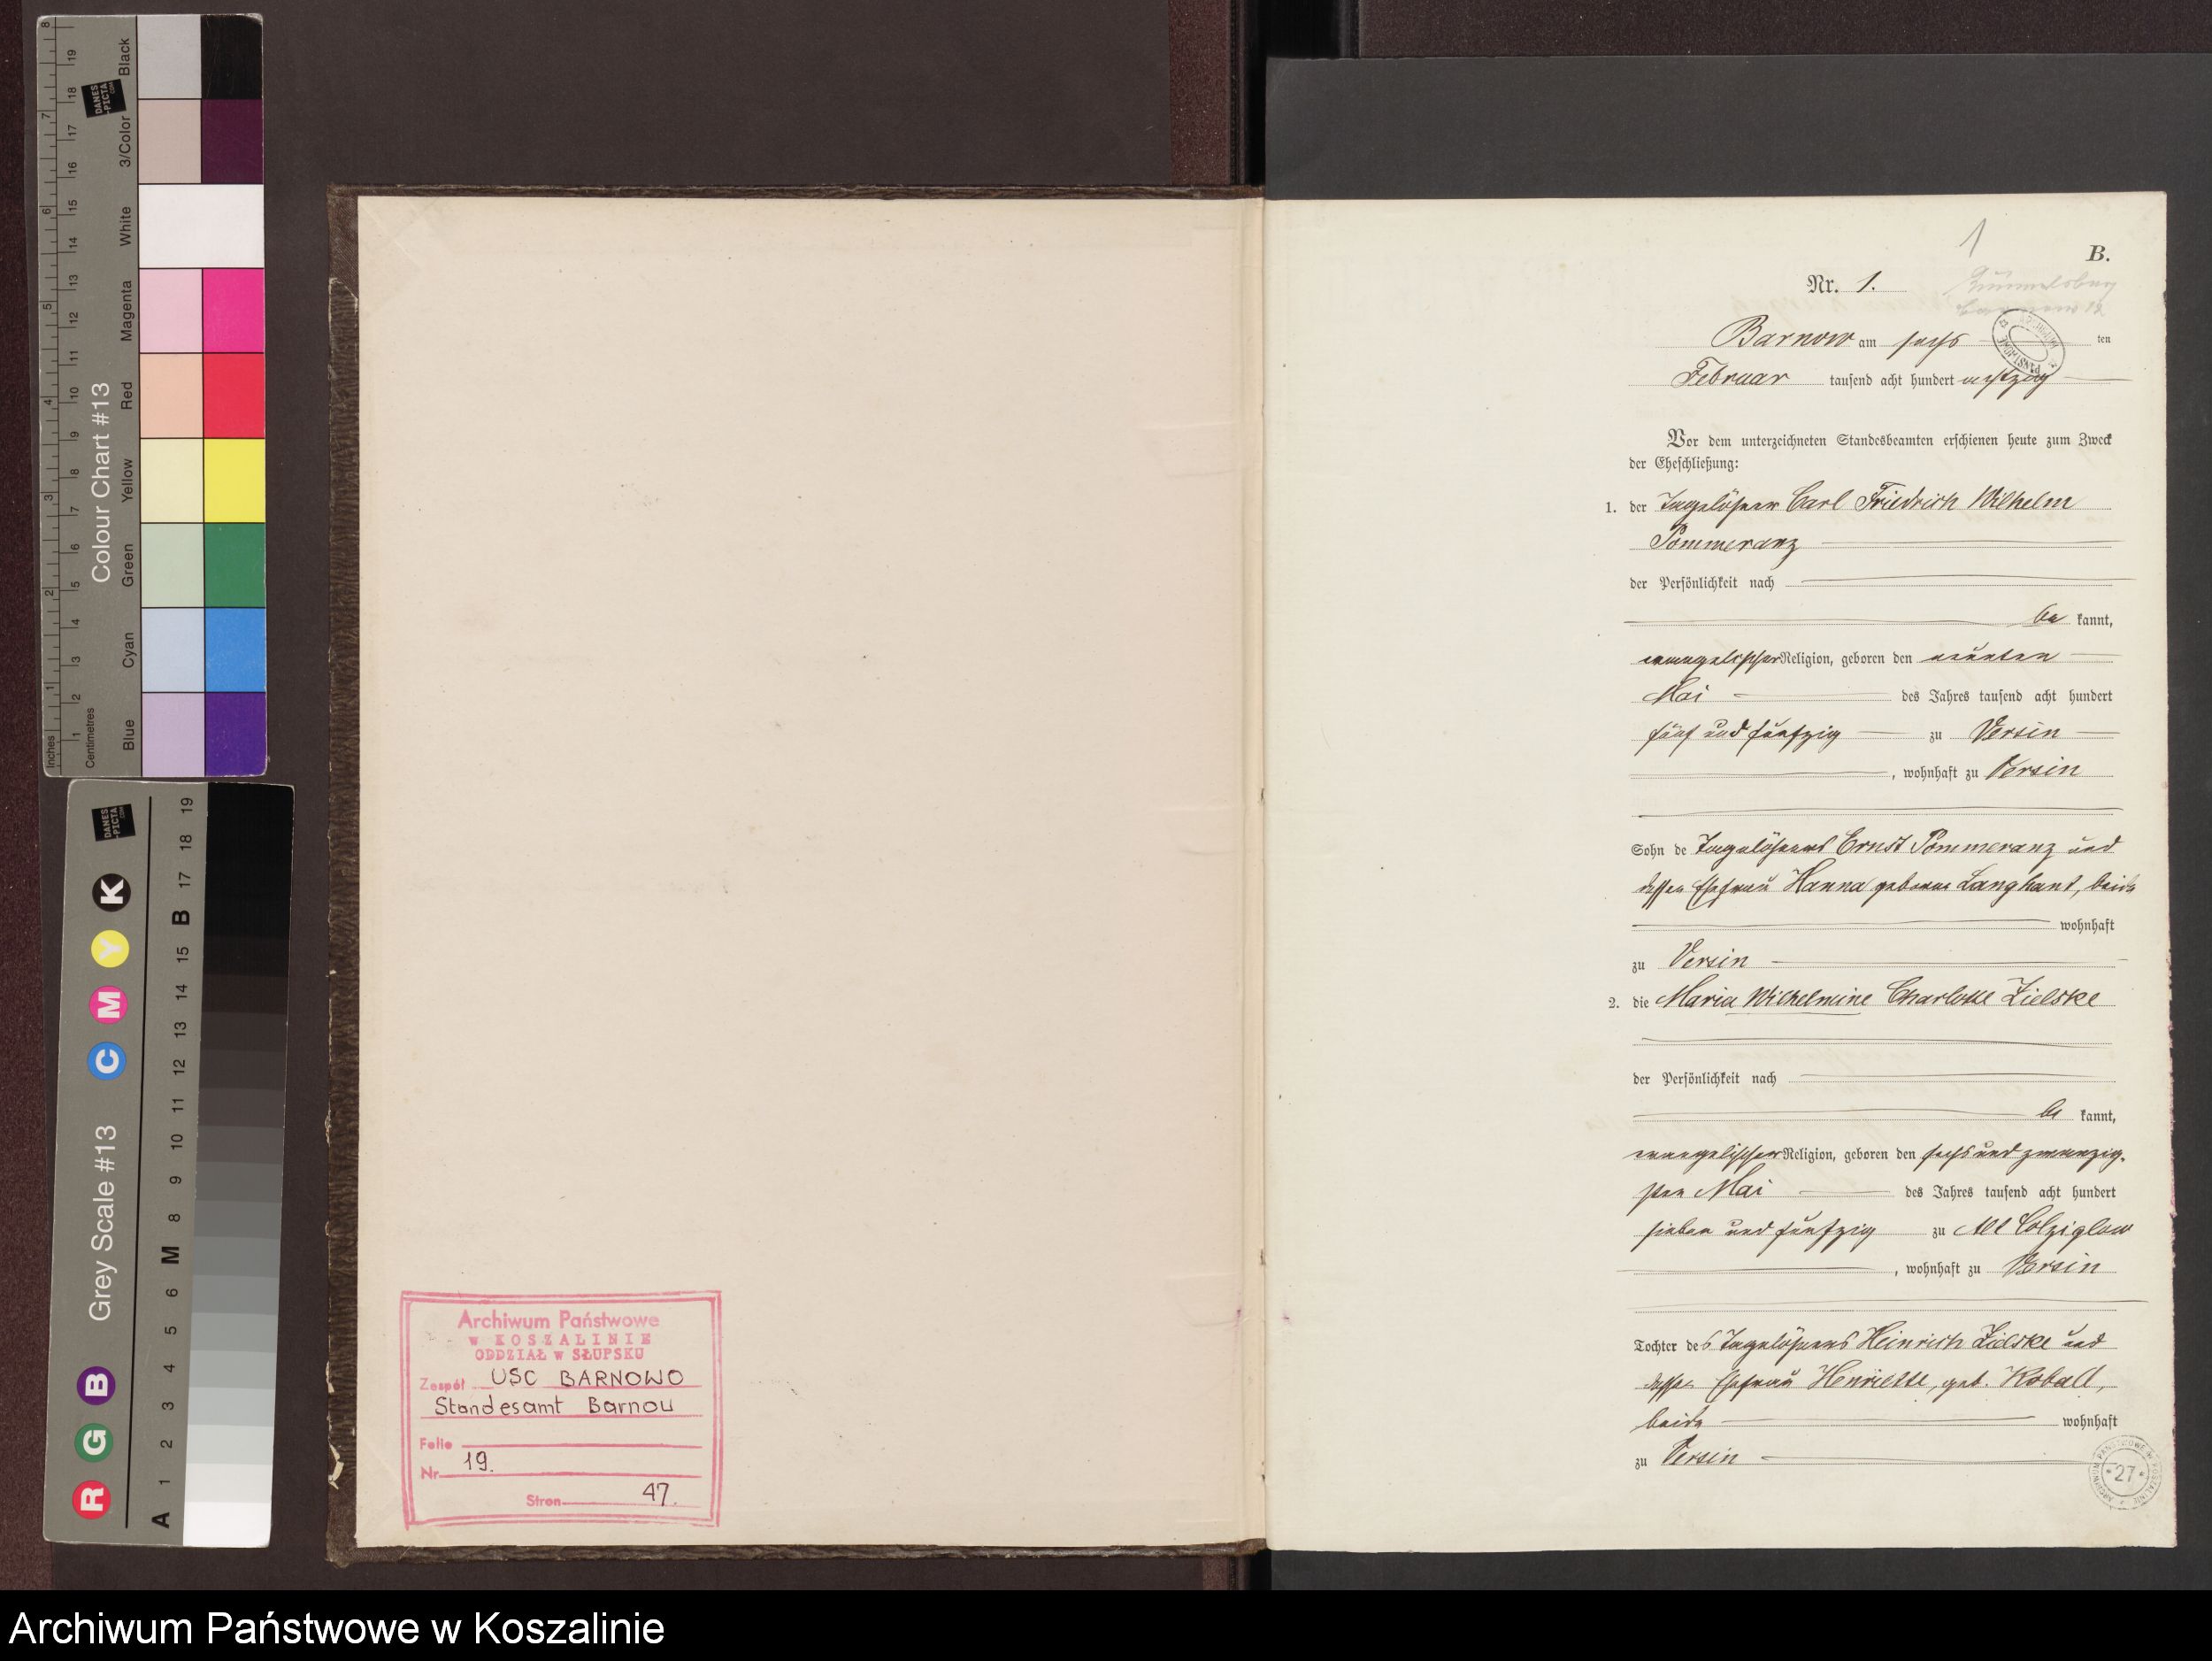 Colour Chart #13
Blue Cyan Green Yellow Red Magenta White 3/Color Black
Inches
Centimetres
DANES
-PICTA
.COM
Grey Scale #13
R G B C M Y K
A 1 2 3 4 5 6 M 8 9 10 11 12 13 14 15 B 17 18 19
DANES
-PICTA
.COM
Archiwum Państwowe
w KOSZALINIE
ODDZIAŁ w SŁUPSKU
Zespół USC BARNOWO
Standesamt Barnow
Folio
Nr 19.
Stron 47.
1
B.
Nr. 1.
Rummelsburg
Barnow am sechs ten
Februar tausend acht hundert achtzig
Vor dem unterzeichneten Standesbeamten erschienen heute zum Zweck
der Eheschließung:
1. der Tagelöhner Carl Friedrich Wilhelm
Pommeranz
der Persönlichkeit nach
be kannt,
evangelischer Religion, geboren den neunten
Mai des Jahres tausend acht hundert
fünf und fünfzig zu Versin
, wohnhaft zu Versin
Sohn de Tagelöhners Ernst Pommeranz und
dessen Ehefrau Hanna geborne Langhant, beide
wohnhaft
zu Versin
2. die Maria Wilhelmine Charlotte Zielske
der Persönlichkeit nach
be kannt,
evangelischer Religion, geboren den sechs und zwanzig-
sten Mai des Jahres tausend acht hundert
sieben und fünfzig zu Alt Colziglow
, wohnhaft zu Versin
Tochter des Tagelöhners Heinrich Zielske und
dessen Ehefrau Henriette, geb. Koball,
beide wohnhaft
zu Versin
ARCHIWUM PAŃSTWOWE W KOSZALINIE
* 27 *
Archiwum Państwowe w Koszalinie